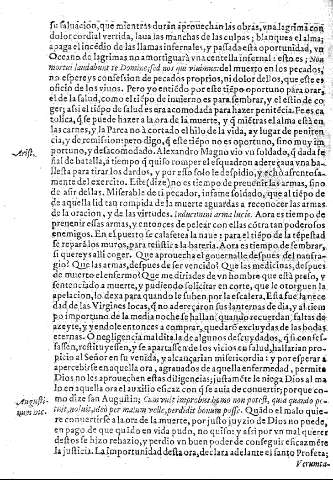 su salvacion, que mientras durán aprouechan las obras, vna lagrima con
dolor cordial vertida, laua las manchas de las culpas; blanquea el alma;
apaga el incẽdio de las llamas infernales, y passada esta oportunidad, vn
Oceano de lagrimas no amortiguarà vna centella infernal: esto es; Non
mortui laudabunt te Domine, sed nos qui viuimus: del muerto en los pecados,
no espereys confession de pecados proprios, ni dolor dellos, que este es
oficio de los viuos. Pero yo entiẽdo por este tiẽpo oportuno para orar,
el de la salud, como el tiẽpo de inuierno es para sembrar, y el estio de co-
ger; assi el tiẽpo de salud es para acomodada para hazer penitẽcia. Fe es ca
tolica, q̃ se puede hazer a la ora de la muerte, y q̃ miẽtras el alma està en
las carnes, y la Parca no à cortado el hilo de la vida, ay lugar de peniten
cia, y de remission: pero digo, q̃ este tiẽpo no es oportuno, sino muy im-
portuno, y desacomodado. Alexandro Magno viò vn soldado, q̃ dada se
ñal de batalla, à tiempo q̃ quiso romper el esquadron adereçaua vna ba-
llesta para tirar los dardos, y por esso solo le despidio, y echò afrentosa-
mente del exercito. Este (dize) no es tiempo de preuenir las armas, sino
de asir dellas. Miserable de ti pecador, infame soldado, que al tiẽpo de
de aquella lid tan rompida de la muerte aguardas a reconocer las armas
de la oracion, y de las virtudes. Induciamini arma lucis. Aora es tiempo de
preuenir essas armas, y entonces de pelear con ellas cõtra tan poderosos
enemigos. En el puerto se calafetea la naue: para el tiẽpo de la tẽpestad
se reparã los muros, para resistir a la bateria. Aora es tiempo de sembrar,
si quereys alli coger. Que aprouecha el gouernalle despues del naufra-
gio? Que las armas, despues de ser vencido? Que las medicinas, despues
de muerto el enfermo? Que me dirìdes de vn hombre que està preso, y
sentenciado a muerte, y pudiendo solicitar en corte, que le otorguen la
apelacion, lo dexa para quando le suben por la escalera. Esta fue la nece
dad de las Virgines locas, q̃ no adereçaron sus lanternas de dia, y al tiem
po importuno de la media noche se hallan, quando recuerdan, faltas de
azeyte, y yendole entonces a comprar, quedarõ excluydas de las bodas
eternas. O negligencia maldita de algunos descuydados, q̃ si confes-
sassen, restituyessen, y se apartassẽ de los vicios en salud, hallarian pro-
picio al Señor en su venida, y alcançarian misericordia: y por esperar a
apercebirse en aquella ora, agrauados de aquella enfermedad, permite
Dios no les aprouechen estas diligencias; justamẽte le niega Dios al ma
lo en aquella ora el auxilio eficaz con q̃ se auia de conuertir; porque co-
mo dize san Augustin; Cum vult improbus homo non potest, quia quando po-
tuit, noluit, ideò per malum velle, perdidit bonum posse. Quãdo el malo quie-
re conuertirse a la ora de la muerte, por justo juyzio de Dios no puede,
en pago de que quãdo en vida pudo, no quiso; y assi por vn mal querer
destos se hizo rehazio, y perdio vn buen poder de conseguir eficazmẽte
la justicia. La importunidad desta ora, declara adelante el santo Profeta;
Verumta-
Arist.
Augusti-